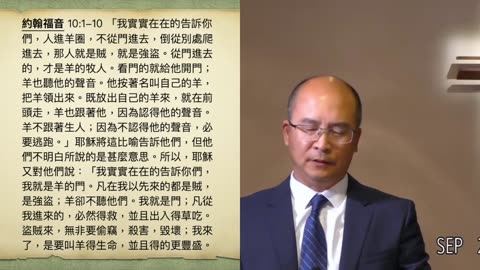 約翰福音 10:1–10 「我實實在在的告訴你
們，人進羊圈，不從門進去，倒從別處爬
進去，那人就是賊，就是強盜。從門進去
的，才是羊的牧人。看門的就給他開門；
羊也聽他的聲音。他按著名叫自己的羊，
把羊領出來。既放出自己的羊來，就在前
頭走，羊也跟著他，因為認得他的聲音。
羊不跟著生人；因為不認得他的聲音，必
要逃跑。」耶穌將這比喻告訴他們，但他
們不明白所說的是甚麼意思。所以，耶穌
又對他們說：「我實實在在的告訴你們，
我就是羊的門。凡在我以先來的都是賊，
是強盜；羊卻不聽他們。我就是門；凡從
我進來的，必然得救，並且出入得草吃。
盜賊來，無非要偷竊，殺害，毀壞；我來
了，是要叫羊得生命，並且得的更豐盛。
SEP 2